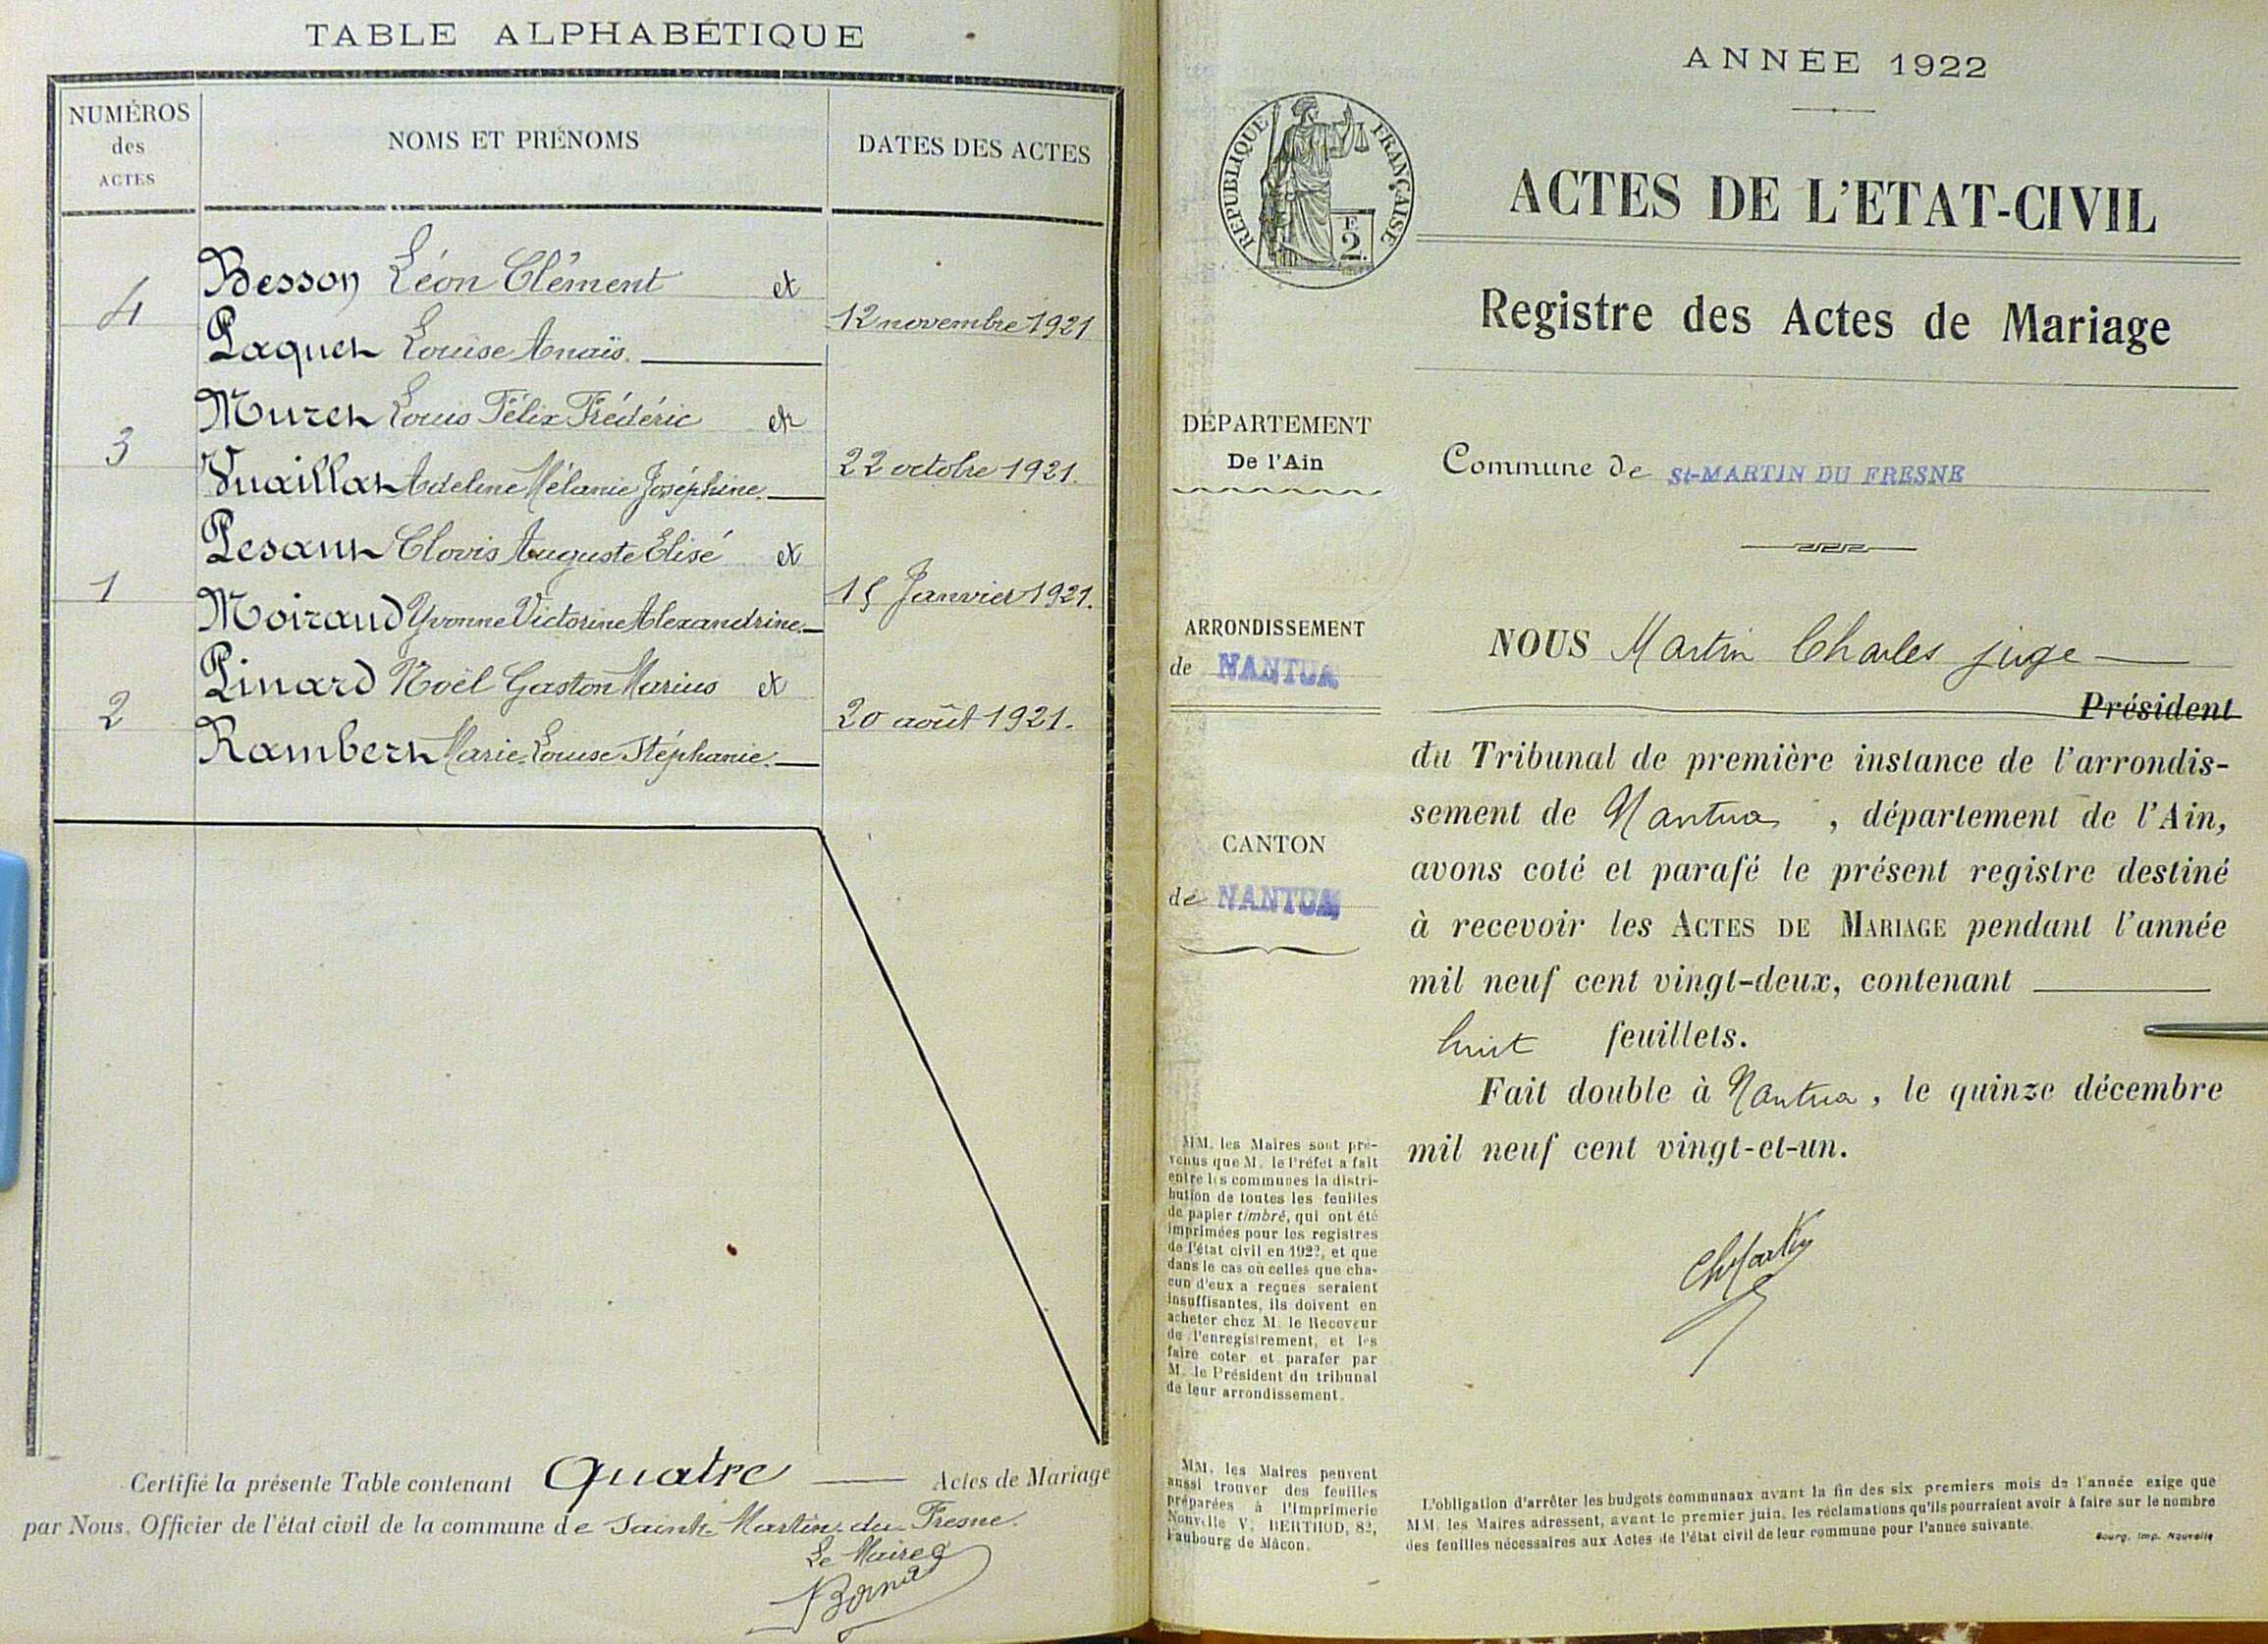 TABLE ALPHABÉTIQUE
NUMÉROS
des
ACTES
NOMS ET PRÉNOMS
DATES DES ACTES
4
Besson Léon Clément et
Paquet Louise Anaïs.
12 novembre 1921
3
Muret Louis Félix Frédéric et
Vuaillat Adeline Mélanie Joséphine.
22 octobre 1921.
1
Pesant Clovis Auguste Elisé et
Moiraud Yvonne Victorine Alexandrine.
15 Janvier 1921.
2
Pinard Noël Gaston Marius et
Rambert Marie Louise Stéphanie.
20 août 1921.
Certifié la présente Table contenant Quatre Actes de Mariage
par Nous, Officier de l'état civil de la commune de Saint-Martin-du-Fresne.
Le Maire
ANNÉE 1922
RÉPUBLIQUE FRANÇAISE
F
2.
ACTES DE L'ETAT-CIVIL
Registre des Actes de Mariage
DÉPARTEMENT
De l'Ain
Commune de St-MARTIN DU FRESNE
ARRONDISSEMENT
de NANTUA
CANTON
de NANTUA
NOUS Martin Charles juge
Président
du Tribunal de première instance de l'arrondis-
sement de Nantua, département de l'Ain,
avons coté et parafé le présent registre destiné
à recevoir les ACTES DE MARIAGE pendant l'année
mil neuf cent vingt-deux, contenant
huit feuillets.
Fait double à Nantua, le quinze décembre
mil neuf cent vingt-et-un.
Ch Martin
MM. les Maires sont pré-
venus que M. le Préfet a fait
entre les communes la distri-
bution de toutes les feuilles
de papier timbré, qui ont été
imprimées pour les registres
de l'état civil en 1922, et que
dans le cas où celles que cha-
cun d'eux a reçues seraient
insuffisantes, ils doivent en
acheter chez M. le Receveur
de l'enregistrement, et les
faire coter et parafer par
M. le Président du tribunal
de leur arrondissement.
MM. les Maires peuvent
aussi trouver des feuilles
préparées à l'Imprimerie
Nouvelle V. BERTHOD, 82,
Faubourg de Mâcon.
L'obligation d'arrêter les budgets communaux avant la fin des six premiers mois de l'année exige que
MM. les Maires adressent, avant le premier juin, les réclamations qu'ils pourraient avoir à faire sur le nombre
des feuilles nécessaires aux Actes de l'état civil de leur commune pour l'année suivante.
Bourg, Imp. Nouvelle